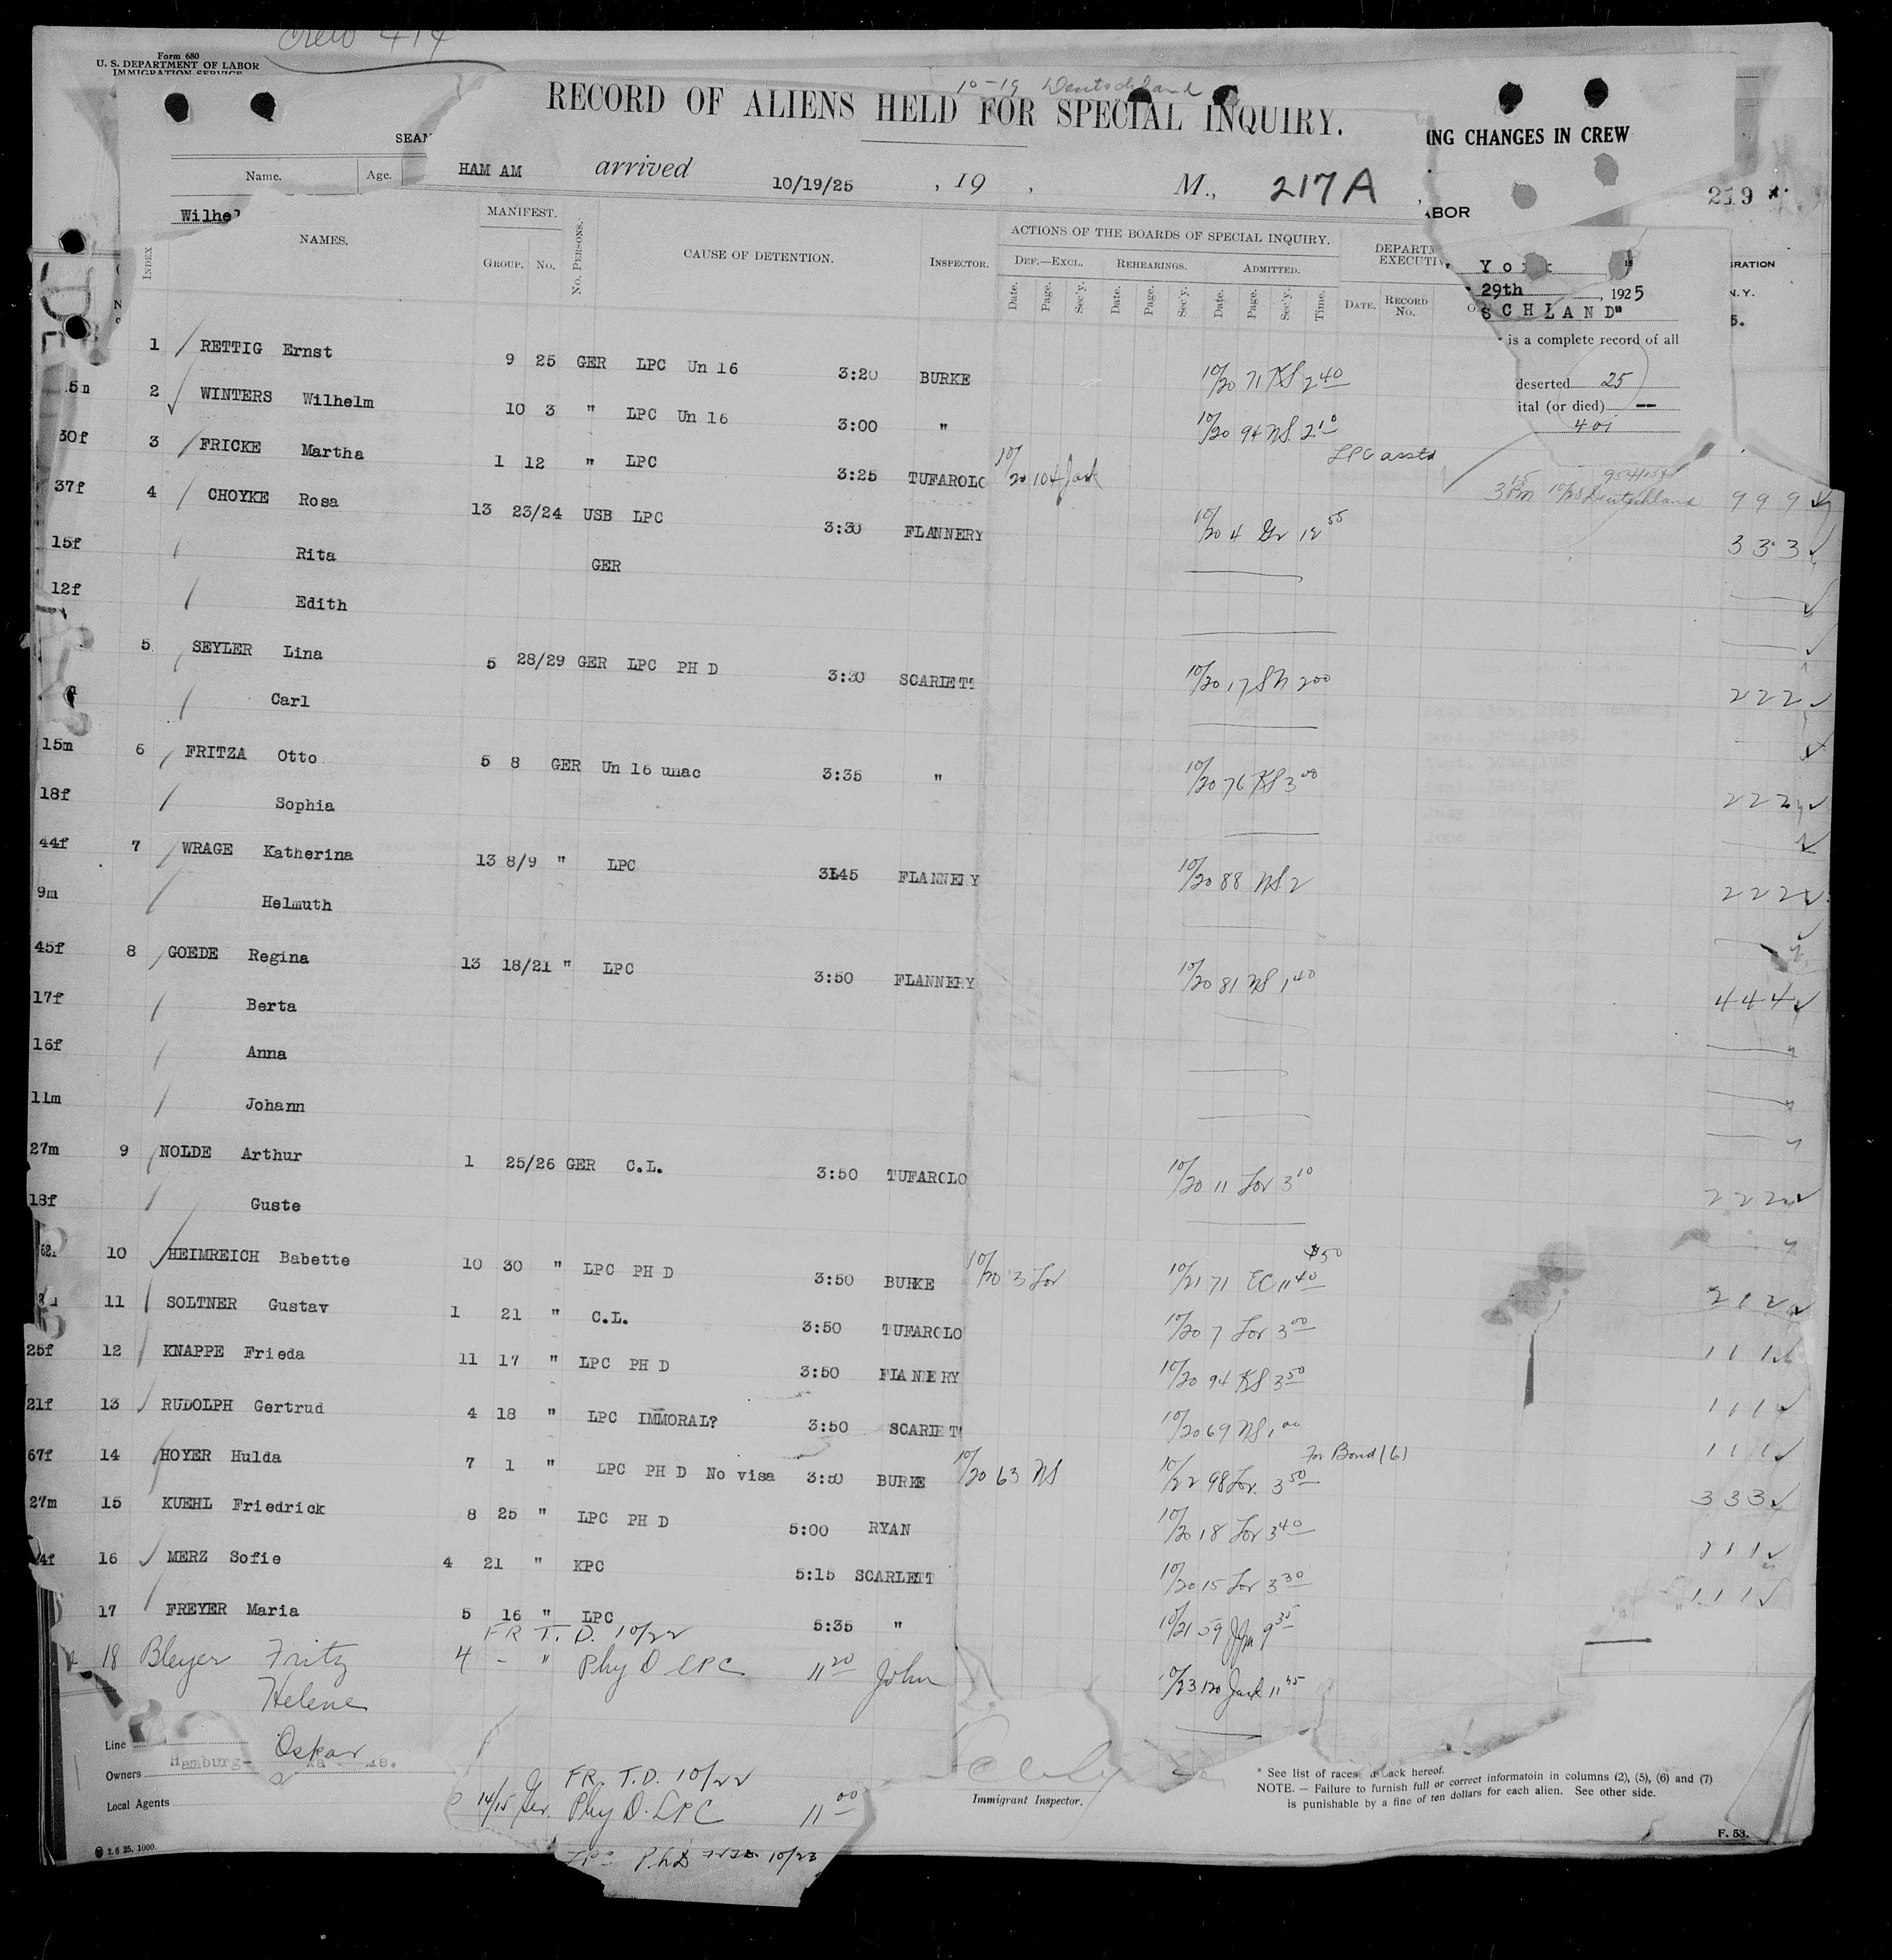 Crew 414
Form 680
U. S. DEPARTMENT OF LABOR
IMMIGRATION SERVICE
10-19 Deutschland
RECORD OF ALIENS HELD FOR SPECIAL INQUIRY.
ING CHANGES IN CREW
SEAM
HAM AM arrived 10/19/25 , 19 , M., 217A
Name. Age.
219
ABOR
Wilhel
MANIFEST. ACTIONS OF THE BOARDS OF SPECIAL INQUIRY.
INDEX NAMES. GROUP. No. No. PERSONS. CAUSE OF DETENTION. INSPECTOR. DEF.—EXCL. REHEARINGS. ADMITTED.
Date. Page. Sec'y. Date. Page. Sec'y. Date. Page. Sec'y. Time. DATE. RECORD No.
York
29th, 1925
SCHLAND"
is a complete record of all
deserted 25
ital (or died) --
401
RATION
N.Y.
5.
1 / RETTIG Ernst 9 25 GER LPC Un 16 3:20 BURKE 10/20 71 KS 2 40
2 √ WINTERS Wilhelm 10 3 " LPC Un 16 3:00 " 10/20 94 NS 2 10
30f 3 / FRICKE Martha 1 12 " LPC 3:25 TUFAROLO 10/20 104 Jack LPC 10/28 Deutschland 9 9 9
37f 4 / CHOYKE Rosa 13 23/24 USB LPC 3:30 FLANNERY 10/20 4 Gr 12 55 3 3 3
15f / Rita GER
12f / Edith
5 / SEYLER Lina 5 28/29 GER LPC PH D 3:30 SCARLETT 10/20 17 Sh 2 00 2 2 2
/ Carl
15m 6 / FRITZA Otto 5 8 GER Un 16 unac 3:35 " 10/20 76 KS 3 00 2 2 2
18f / Sophia
44f 7 / WRAGE Katherina 13 8/9 " LPC 3:45 FLANNERY 10/20 88 NS 2 2 2 2
9m / Helmuth
45f 8 / GOEDE Regina 13 18/21 " LPC 3:50 FLANNERY 10/20 81 NS 1 40 4 4 4
17f / Berta
16f / Anna
11m / Johann
27m 9 / NOLDE Arthur 1 25/26 GER C.L. 3:50 TUFAROLO 10/20 11 Lor 3 10 2 2 2
18f / Guste
10 √ HEIMREICH Babette 10 30 " LPC PH D 3:50 BURKE 10/20 3 Lor 10/21 71 EC 11 40 $50 2 2 2
11 / SOLTNER Gustav 1 21 " C.L. 3:50 TUFAROLO 10/20 7 Lor 3 00 1 1 1
25f 12 / KNAPPE Frieda 11 17 " LPC PH D 3:50 FLANNERY 10/20 94 KS 3 50 1 1 1
21f 13 √ RUDOLPH Gertrud 4 18 " LPC IMMORAL? 3:50 SCARLETT 10/20 69 NS 1 00 1 1 1
67f 14 / HOYER Hulda 7 1 " LPC PH D No visa 3:50 BURKE 10/20 63 NS 10/22 98 Lor. 3 50 For Bond (6) 3 3 3
27m 15 KUEHL Friedrick 8 25 " LPC PH D 5:00 RYAN 10/20 18 Lor 3 40 1 1 1
16 √ MERZ Sofie 4 21 " KPC 5:15 SCARLETT 10/20 15 Lor 3 30 1 1 1
17 / FREYER Maria 5 16 " LPC 5:35 " 10/21 59 9 35
FR T. D. 10/22
18 Bleyer Fritz 4 - " Phy D LPC 11 20 John 10/23 120 Jack 11 45
Helene
Line
Oskar
Owners Hamburg-
Local Agents
FR. T.D. 10/22
14/15 Ger. Phy D. LPC 11 00
Immigrant Inspector.
* See list of races back hereof.
NOTE. — Failure to furnish full or correct informatoin in columns (2), (5), (6) and (7)
is punishable by a fine of ten dollars for each alien. See other side.
F. 53.
2. 6 25. 1000.
LPC PhD 10/23